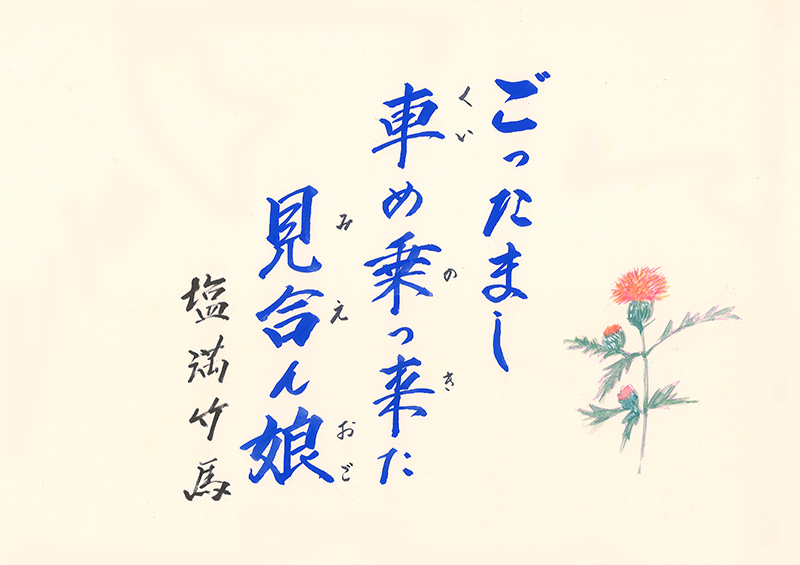 ごったまし
車め乗っ来た
くい
の
き
見合ん娘
みえ
おご
塩満竹馬